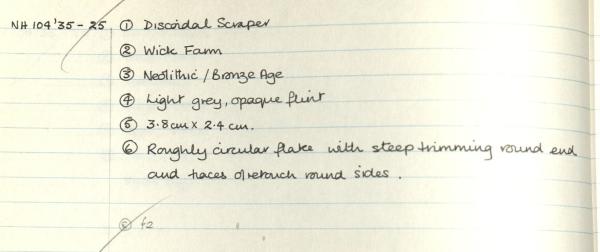 NH 104'35 - 25 ① Discoidal Scraper
② Wick Farm
③ Neolithic / Bronze Age
④ Light grey, opaque flint
⑤ 3.8cm x 2.4 cm.
⑥ Roughly circular flake with steep trimming round end
and traces of retouch round sides.
© f2